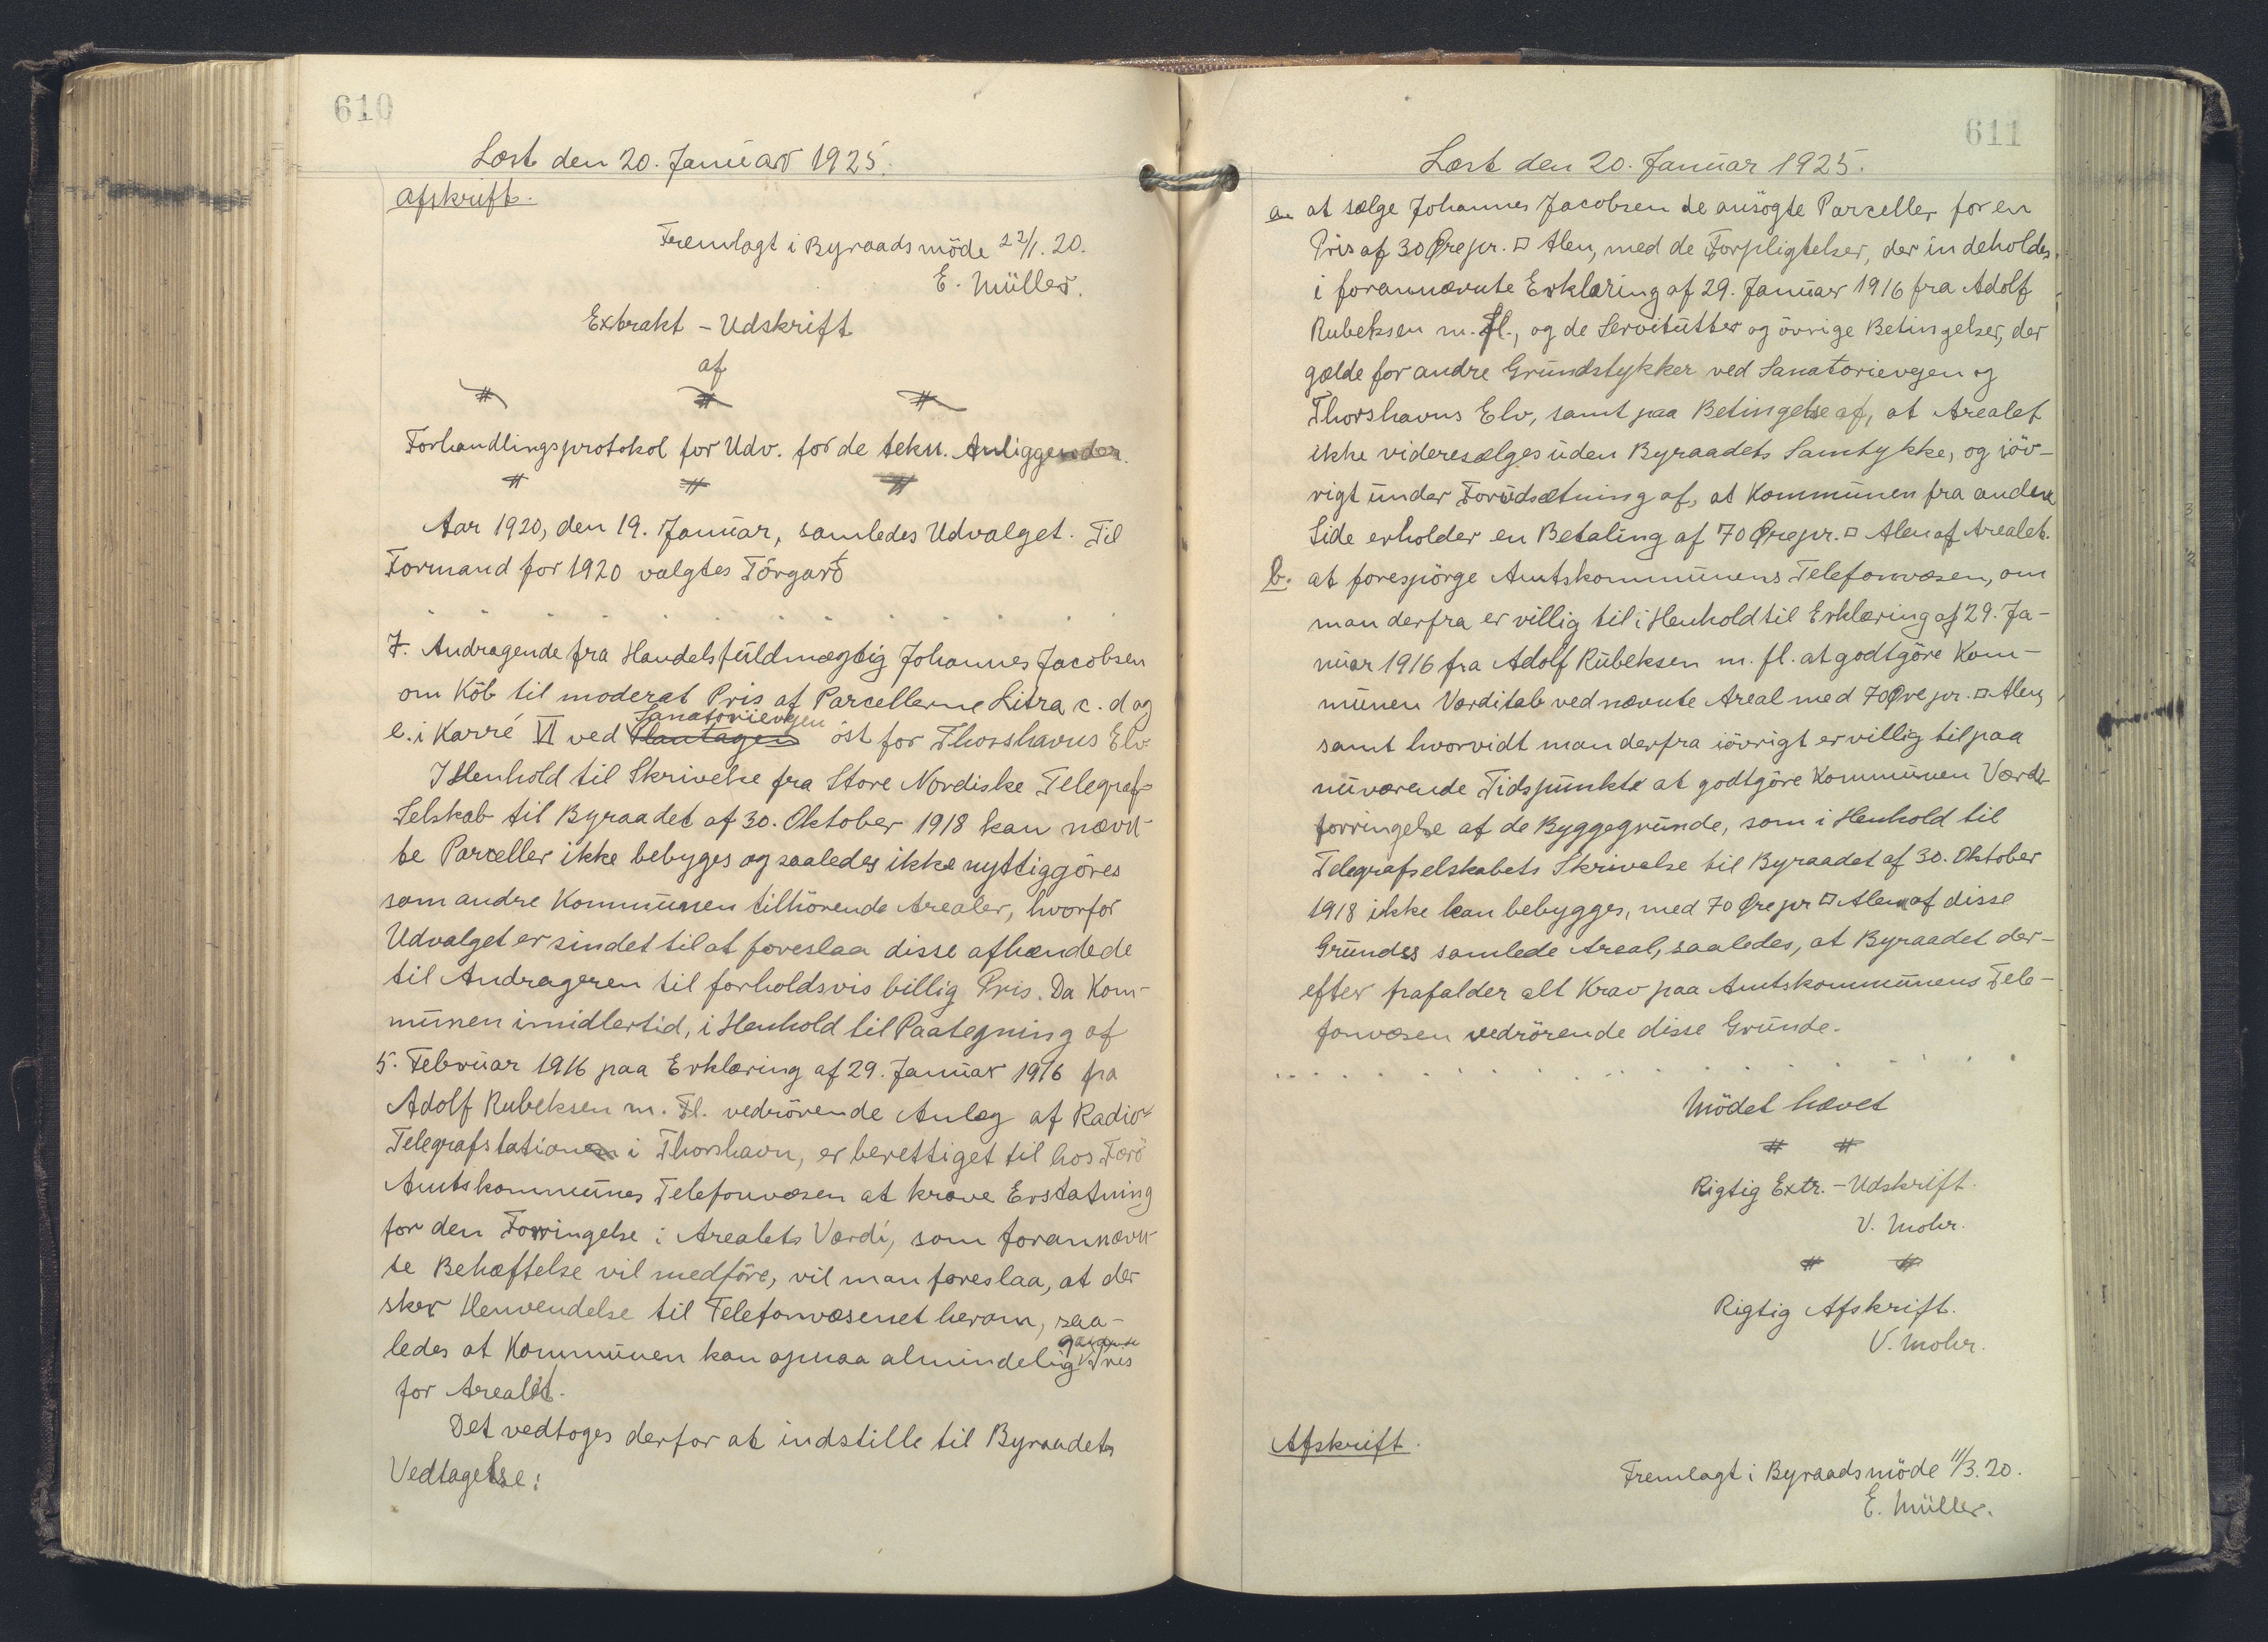 610
Læst den 20. Januar 1925.
Afskrift.
Fremlagt i Byraadsmöde 22/1. 20.
E. Müller.
Extrakt - Udskrift
af
Forhandlingsprotokol for Udv. for de tekn. Anliggender.
Aar 1920, den 19. Januar, samledes Udvalget. Til
Formand for 1920 valgtes Törgard
7. Andragende fra Handelsfuldmægtig Johannes Jacobsen
om Köb til moderat Pris af Parcellerne Litra c. d og
Sanatorievejen
e. i Karré VI ved Plantagen öst for Thorshavns Elv
I Henhold til Skrivelse fra Store Nordiske Telegraf-
Selskab til Byraadet af 30. Oktober 1918 kan nævn-
te Parceller ikke bebyges og saaledes ikke nyttiggöres
som andre Kommunen tilhörende Arealer, hvorfor
Udvalget er sindet til at foreslaa disse afhændede
til Andrageren til forholdsvis billig Pris. Da Kom-
munen imidlertid, i Henhold til Paategning af
5. Februar 1916 paa Erklæring af 29. Januar 1916 fra
Adolf Rubeksen m. Fl. vedrörende Anlæg af Radio-
Telegrafstationen i Thorshavn, er berettiget til hos Færö
Amtskommunes Telefonvæsen at kræve Erstatning
for den Forringelse i Arealets Værdi, som forannævn-
te Behæftelse vil medföre, vil man foreslaa, at der
sker Henvendelse til Telefonvæsenet herom, saa-
ledes at Kommunen kan opnaa almindelig gangbar Pris
for Arealet.
Det vedtoges derfor at indstille til Byraadets
Vedtagelse:
611
Læst den 20. Januar 1925.
a. at sælge Johannes Jacobsen de ansögte Parceller for en
Pris af 30 Øre pr. □ Alen, med de Forpligtelser, der indeholdes
i forannævnte Erklæring af 29. Januar 1916 fra Adolf
Rubeksen m. fl., og de Servitutter og övrige Betingelser, der
gælde for andre Grundstykker ved Sanatorievejen og
Thorshavns Elv, samt paa Betingelse af, at Arealet
ikke videresælges uden Byraadets Samtykke, og iöv-
rigt under Forudsætning af, at Kommunen fra anden
Side erholder en Betaling af 70 Øre pr. □ Alen af Arealet.
b. at forespörge Amtskommunens Telefonvæsen, om
man derfra er villig til i Henhold til Erklæring af 29. Ja-
nuar 1916 fra Adolf Rubeksen m. fl. at godtgöre Kom-
munen Værditab ved nævnte Areal med 70 Øre pr. □ Alen,
samt hvorvidt man derfra iövrigt er villig til paa
nuværende Tidspunkte at godtgöre Kommunen Værdi-
forringelse af de Byggegrunde, som i Henhold til
Telegrafselskabets Skrivelse til Byraadet af 30. Oktober
1918 ikke kan bebygges, med 70 Øre pr □ Alen af disse
Grundes samlede Areal, saaledes, at Byraadet der-
efter frafalder alt Krav paa Amtskommunens Tele-
fonvæsen vedrörende disse Grunde.
Mödet hævet
Rigtig Extr. - Udskrift.
V. Mohr.
Rigtig Afskrift.
V. Mohr.
Afskrift.
Fremlagt i Byraadsmöde 11/3. 20.
E. Müller.